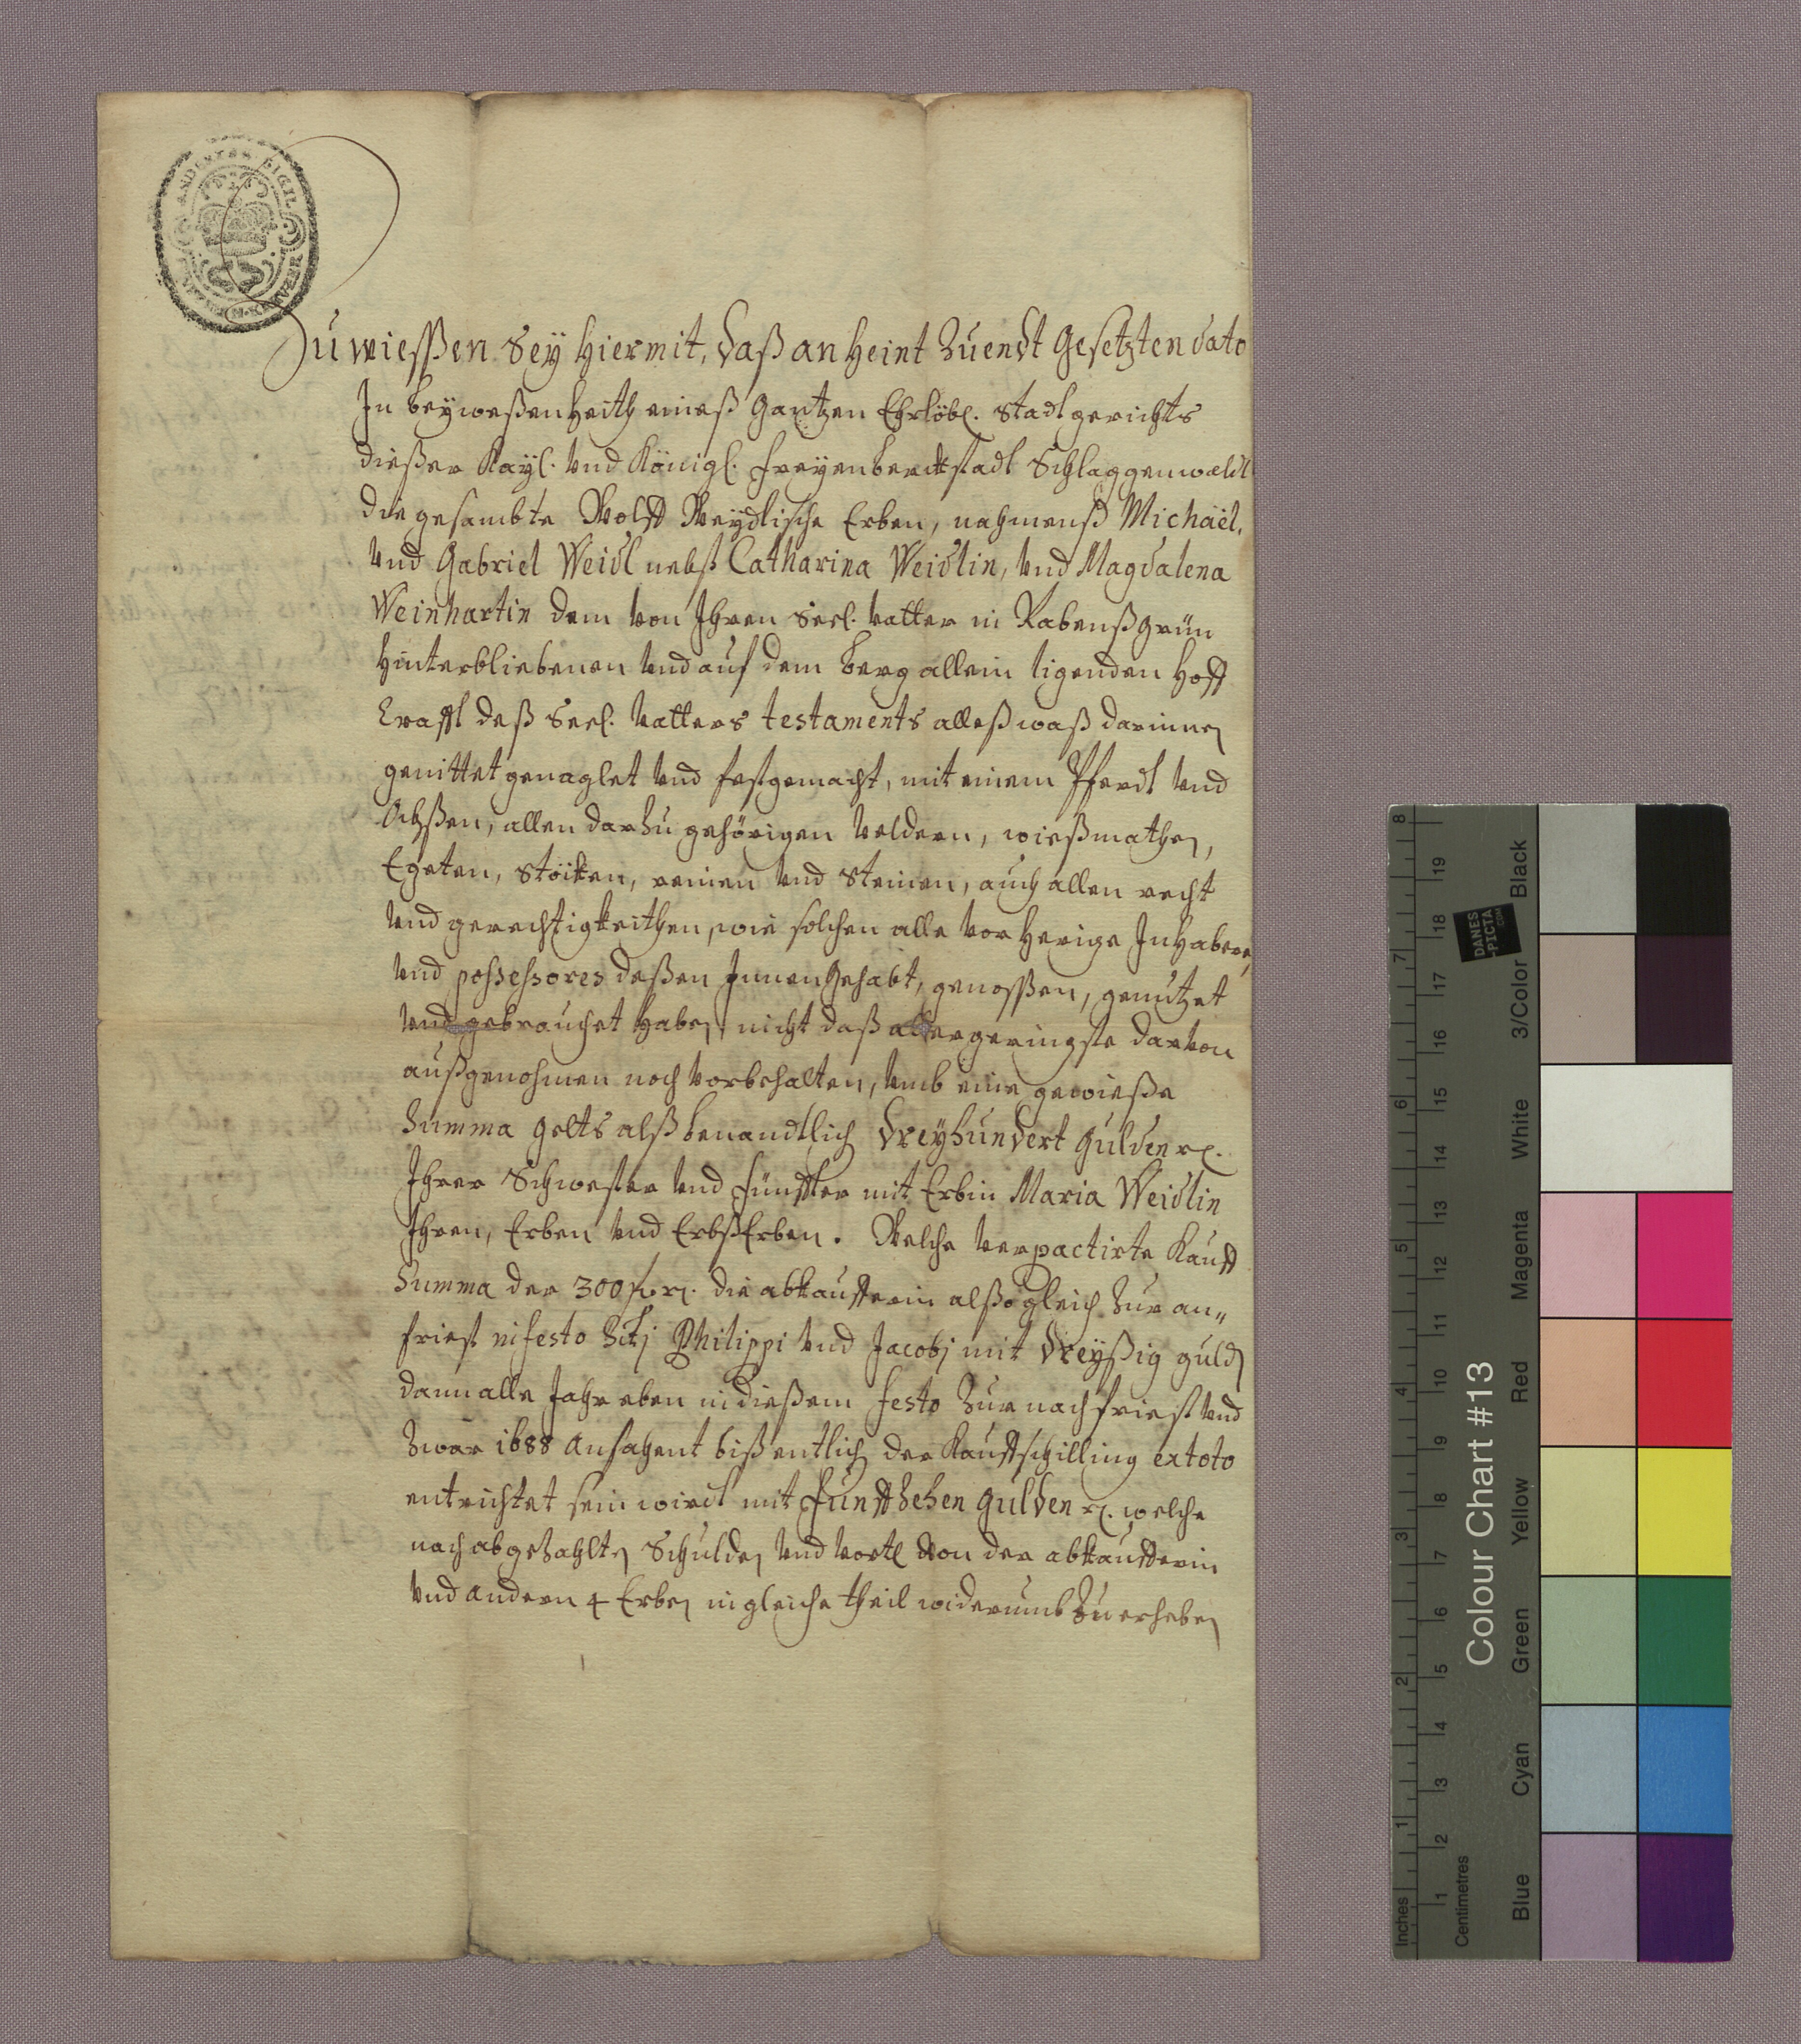 Zu wiesßen Seÿ Hiermit, daß an Heint zuendt Gesetzten dato
In beyweßenheith eineß gantzen Ehrlöbl. Stadtgerichts
dießer Kayl. und Königl. freyenberckstadt Schlaggenwaldt
die gesambte Wolff Weydlische Erben, nahmenß Michaël,
und Gabriel Weidl nebst Catharina Weidlin, und Magdalena
Weinhartin dem von Ihren Seel. vatter in Rabenßgrün
hinterbliebenen und auf dem berg allein ligenden Hoff
Crafft deß Seel. vatters testaments alleß waß darinnen
genittet genaglet und festgemacht, mit einem Pferdt und
Ochßen, allen darzu gehörigen veldern, wießmathen,
Egeten, Stöcken, reinen und Steinen, auch allen recht
und gerechtigkeithen, wie solchen alle vorherige Inhabere,
und possessores deßen Innengehabt, genossßen, genutzet
und gebrauchet haben, nicht daß allergeringste darvon
außgenohmen noch vorbehalten, umb eine gewieße
Summa gelts alß benandtlich dreÿhundert gulden rl.
Ihrer Schwester und fünfften mit Erbin Maria Weidlin
Ihren, Erben und ErbsErben. Welche verpactirte Kauff
Summa der 300 f. rl. die abkaufferin alßogleich zur an„
friest in festo Scti Philippi und Jacobj mit dreyßig guldn
dann alle Jahr eben in dießem festo zur nachfriest und
zwar 1688 anfahent biß entlich der Kauffschilling ex toto
entrichtet sein wirdt mit funffzehen gulden rl. welche
nach abgezahlten Schulden und von der abkaufferin
und andern 4 Erben in gleiche theil widerumb zu erheben
Colour Chart #13
Blue Cyan Green Yellow Red Magenta White 3/Color Black
Inches 1 2 3 4 5 6 7 8
Centimetres 1 2 3 4 5 6 7 8 9 10 11 12 13 14 15 16 17 18 19
DANES
PICTA
.COM